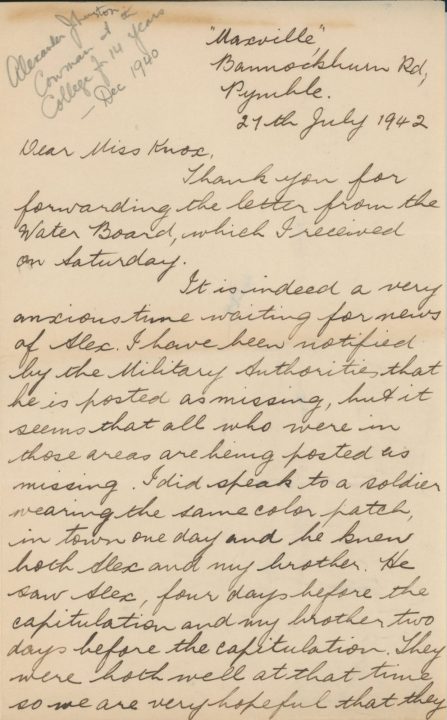 Alexander Johnston
Cowman at
College for 14 years
— Dec 1940
"Maxville",
Bannockburn Rd,
Pymble.
27th July 1942
Dear Miss Knox,
Thank you for
forwarding the letter from the
Water Board, which I received
on Saturday.
It is indeed a very
anxious time waiting for news
of Alex. I have been notified
by the Military Authorities that
he is posted as missing, but it
seems that all who were in
those areas are being posted as
missing. I did speak to a soldier
wearing the same color patch,
in town one day and he knew
both Alex and my brother. He
saw Alex, four days before the
capitulation and my brother two
days before the capitulation. They
were both well at that time
so we are very hopeful that they